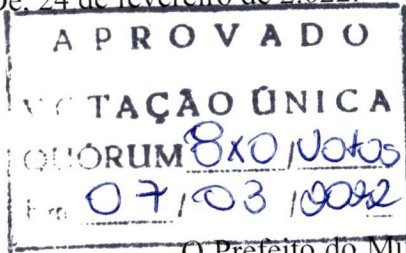 De, 24 de fevereiro de 2.022.
APROVADO
VOTAÇÃO ÚNICA
QUÓRUM 8x0 / Votos
Em 07 / 03 / 2022
O Prefeito do Mu